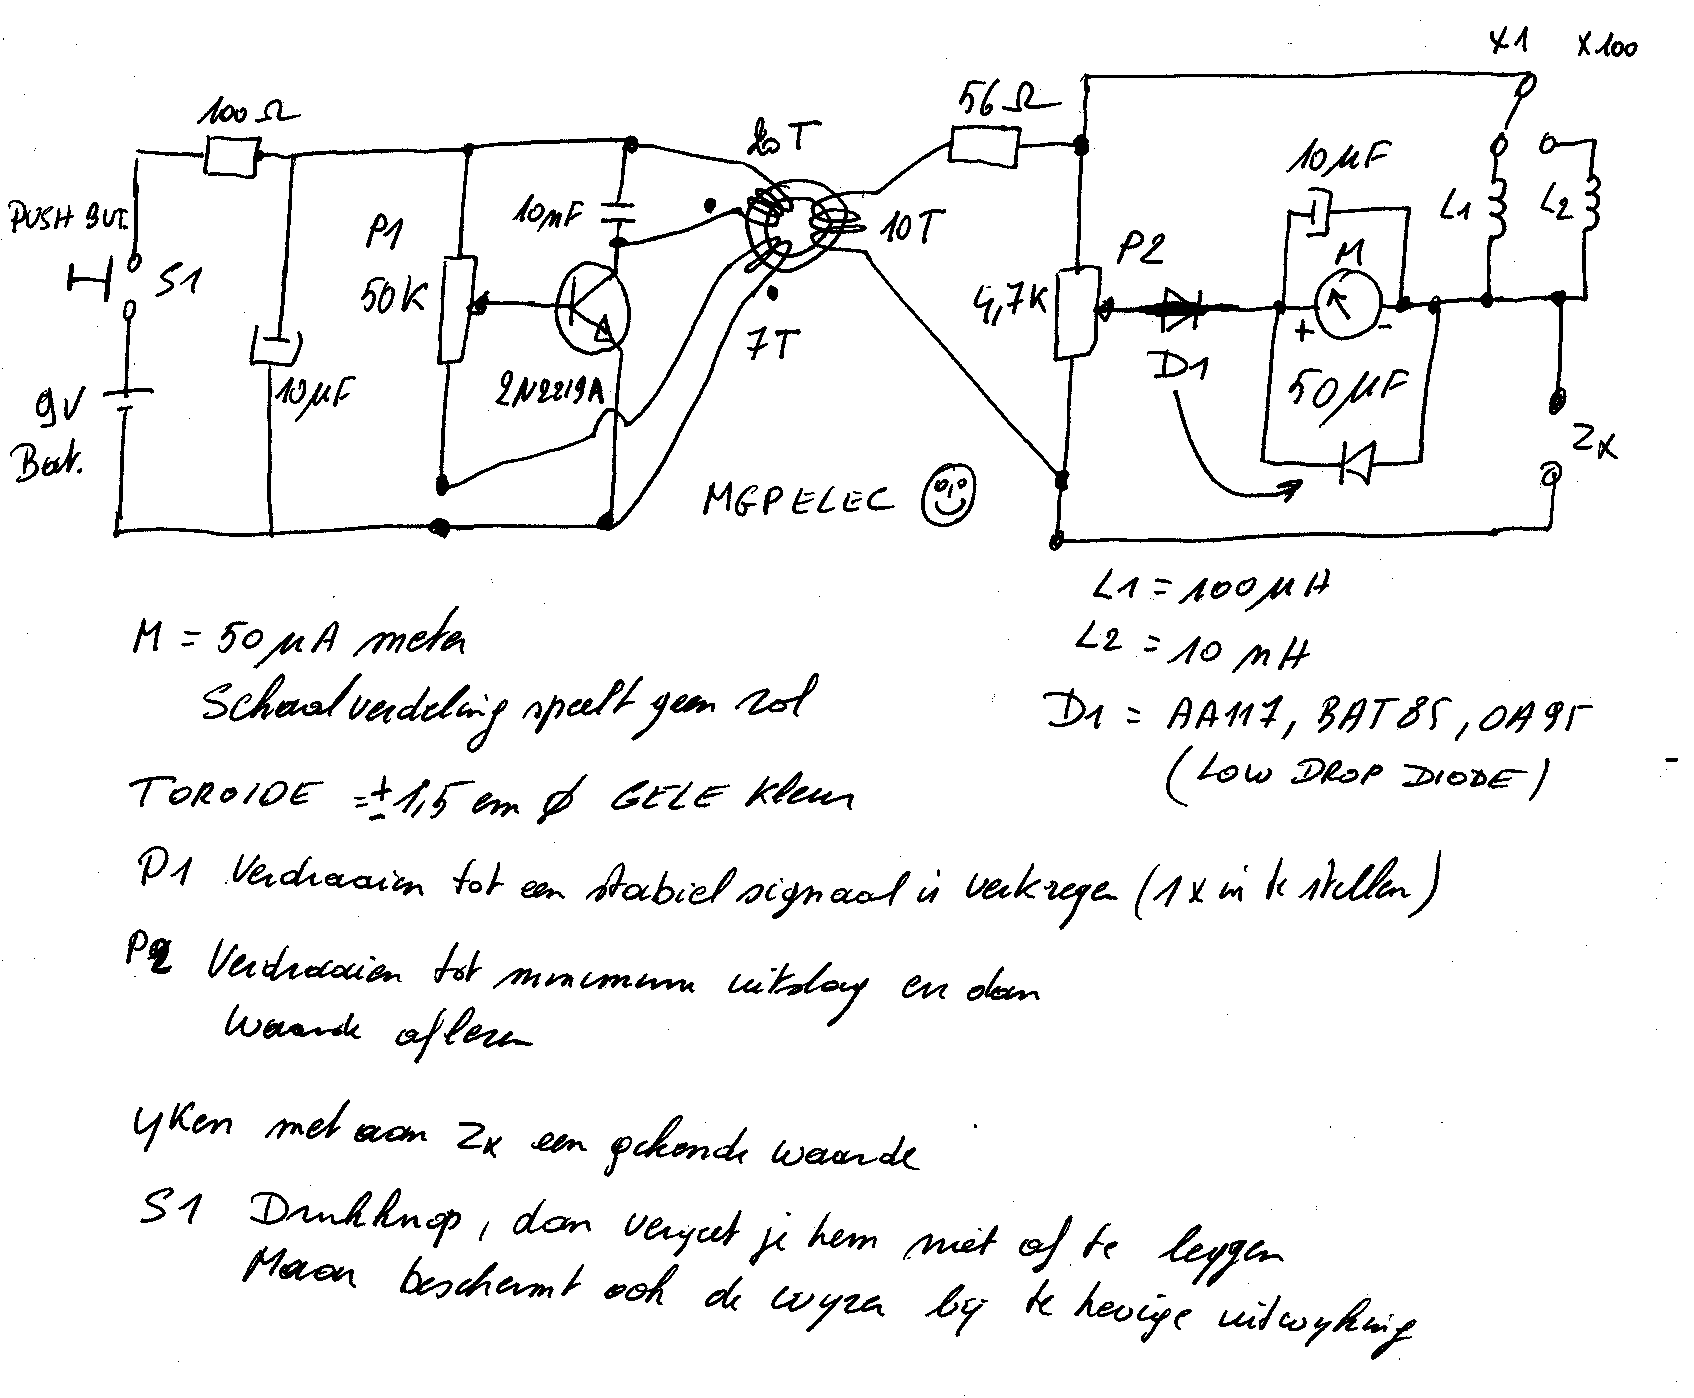 X1 X100
100Ω
20T
56Ω
10µF
PUSH BUT.
S1
P1
50K
10nF
10T
P2
4,7K
M
L1
L2
+ -
9V
Bat.
10µF
2N2219A
7T
D1
50µF
Zx
MGPELEC
L1 = 100µH
M = 50µA meter
L2 = 10mH
Schaalverdeling speelt geen rol
D1 = AA117, BAT85, OA95
(LOW DROP DIODE)
TOROIDE = ± 1,5 cm ϕ GELE Kleur
P1 Verdraaien tot een stabiel signaal is verkregen (1x in te stellen)
P2 Verdraaien tot minimum uitslag en dan
waarde aflezen
yken met aan Zx een gekende waarde
S1 Drukknop, dan vergeet je hem niet af te leggen
Maar beschermt ook de wyzer bij te hevige uitwyking